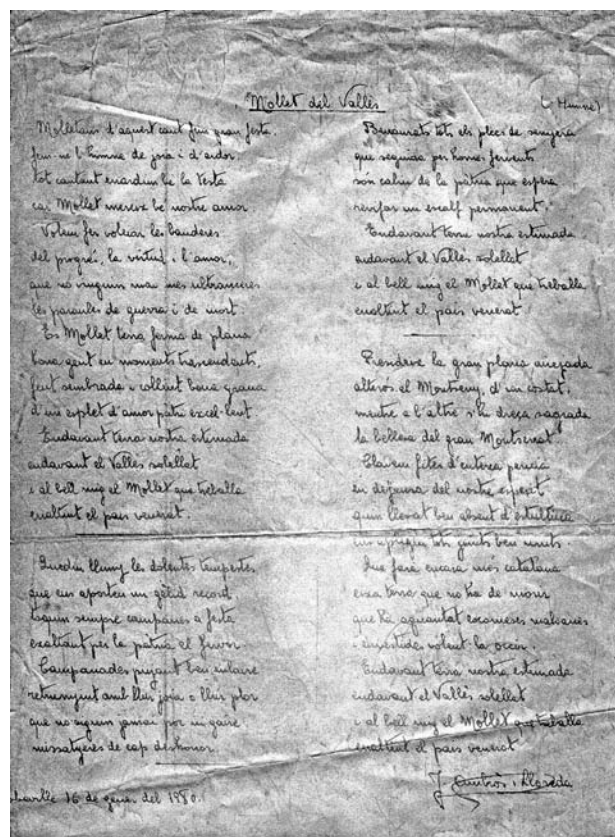 Mollet del Vallès
(Himne)
Molletans d'aquest cant fem gran festa.
fem-ne l'himne de joia i d'ardor.
tot cantant enardim be la testa
car Mollet mereix be nostre amor
Volem fer voleiar les banderes
del progrés, la virtut i l'amor,
que no vinguin mai mes ultranceres
les paraules de guerra i de mort.
Es Mollet terra ferma de plana
bona gent en moments trascendents,
fent sembrada i collint bona grana
d'un esplet d'amor patri excel·lent.
Endavant terra nostra estimada
endavant el Vallès solellat
i al bell mig el Mollet que treballa
enaltint el pais venerat.
Quedin lluny les dolentes tempestes
que ens aporten un gèlid record
toquin sempre campanes a festa
exaltant per la pàtria el fervor
Campanades pujant ben enlaire
retrunyint amb llur joia o llur plor
que no siguin jamai por un gaire
missatgeres de cap deshonor.
16 de gener del 1980.
Benaurats tots els plecs de senyera
que seguida per homes fervents
són caliu de la pàtria que espera
revifar un escalf permanent.
Endavant terra nostra estimada
endavant el Vallès solellat
i al bell mig el Mollet que treballa
enaltint el pais venerat.
Presideix la gran plana
alterós el Montseny, d'un costat,
mentre a l'altre s'hi dreça sagrada
la bellesa del gran Montserrat.
Clavem fites d'entersa
en defensa del nostre esperit
ben absent d'estultícia
tots junts ben units.
Que farà encara més catalana
eixa terra que no ha de morir
que ha aguantat escomeses malsanes
i envestides volent-la occir.
Endavant terra nostra estimada
endavant el Vallès solellat
i al bell mig el Mollet que treballa
enaltint el pais venerat